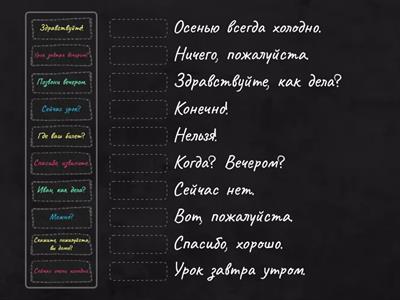 Здравствуйте!
Урок завтра вечером?
Позвони вечером.
Сейчас урок?
Где ваш билет?
Спасибо, извините.
Иван, как дела?
Можно?
Скажите, пожалуйста,
вы дома?
Сейчас очень холодно.
Осенью всегда холодно.
Ничего, пожалуйста.
Здравствуйте, как дела?
Конечно!
Нельзя!
Когда? Вечером?
Сейчас нет.
Вот, пожалуйста.
Спасибо, хорошо.
Урок завтра утром.